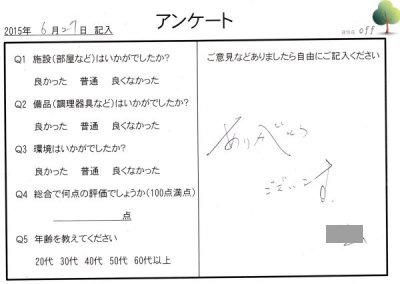 アンケート
2015年 6月27日 記入
asa off
Q1 施設(部屋など)はいかがでしたか?
良かった 普通 良くなかった
Q2 備品(調理器具など)はいかがでしたか?
良かった 普通 良くなかった
Q3 環境はいかがでしたか?
良かった 普通 良くなかった
Q4 総合で何点の評価でしょうか(100点満点)
点
Q5 年齢を教えてください
20代 30代 40代 50代 60代以上
ご意見などありましたら自由にご記入ください
ありがとう
ございます。